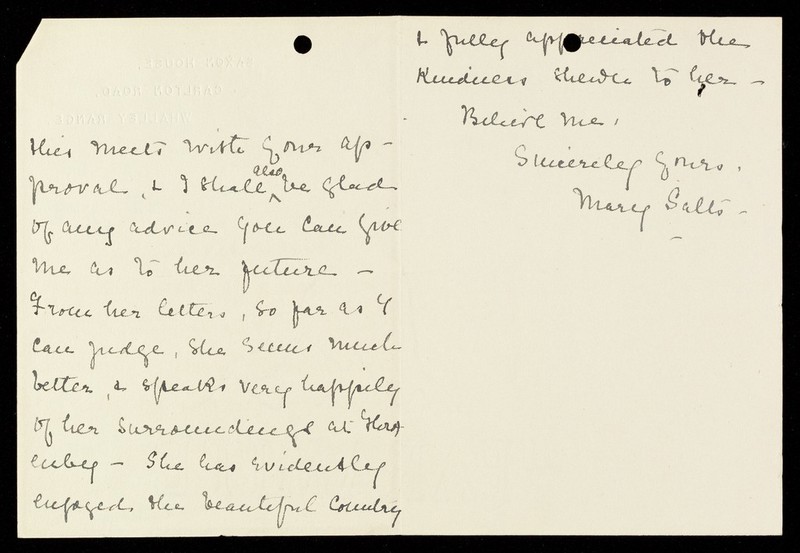 SAXON HOUSE,
CARLTON ROAD,
WHALLEY RANGE.
this meets with your ap-
proval, & I shall also be glad
of any advice you can give
me as to her future –
From her letters, so far as I
can judge, she seems much
better, & speaks very happily
of her surroundings at
enby – She has evidently
enjoyed the beautiful country
& fully appreciated the
kindness shewn to her –
Believe me,
Sincerely yours,
Mary Salts –